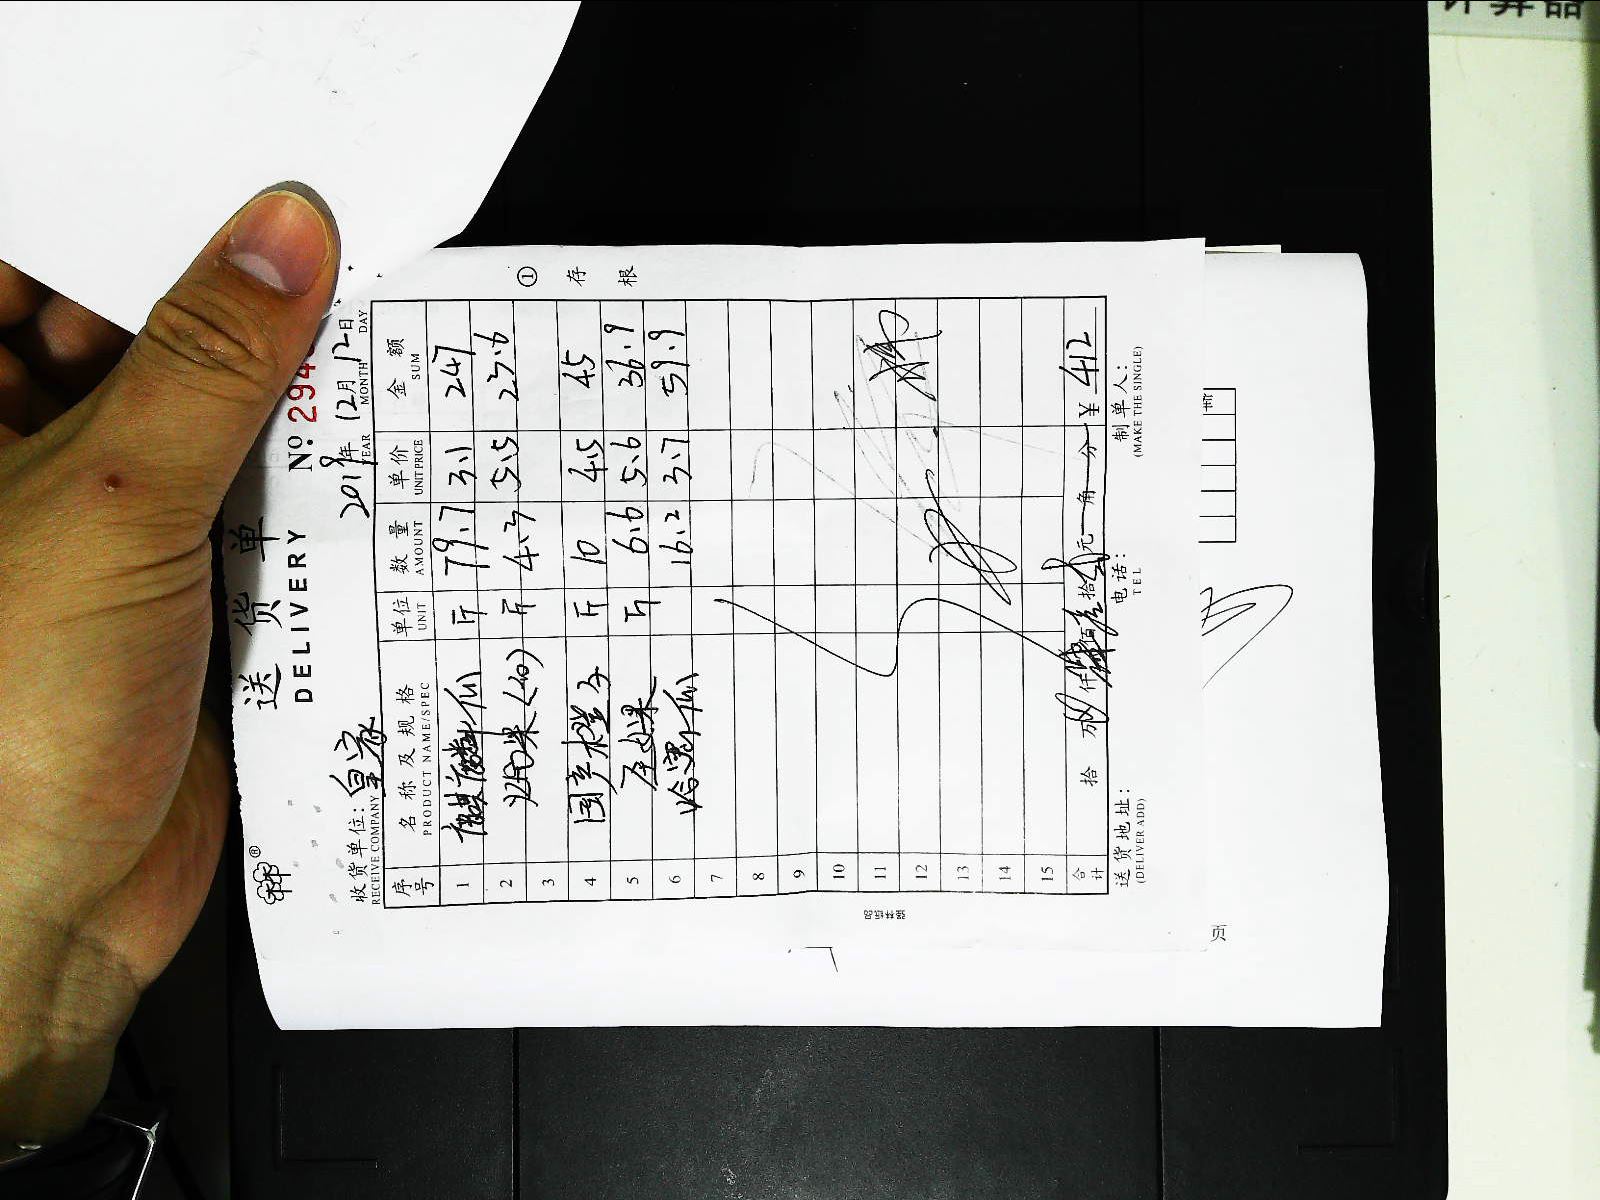 计算器
送货单
DELIVERY
No. 294
2019年12月12日
YEAR MONTH DAY
收货单位：皇家
RECEIVE COMPANY
序号 名称及规格 单位 数量 单价 金额
PRODUCT NAME/SPEC UNIT AMOUNT UNIT PRICE SUM
1 麒麟瓜 斤 79.7 3.1 247
2 斤 4.3 5.5 23.6
3
4 国产橙子 斤 10 4.5 45
5 斤 6.6 5.6 36.9
6 哈密瓜 16.2 3.7 59.9
7
8
9
10
11
12
13
14
15
合计 拾 万 仟 佰 拾 元 角 分 ¥ 412
送货地址： 电话： 制单人：
(DELIVER ADD) TEL (MAKE THE SINGLE)
① 存根
页